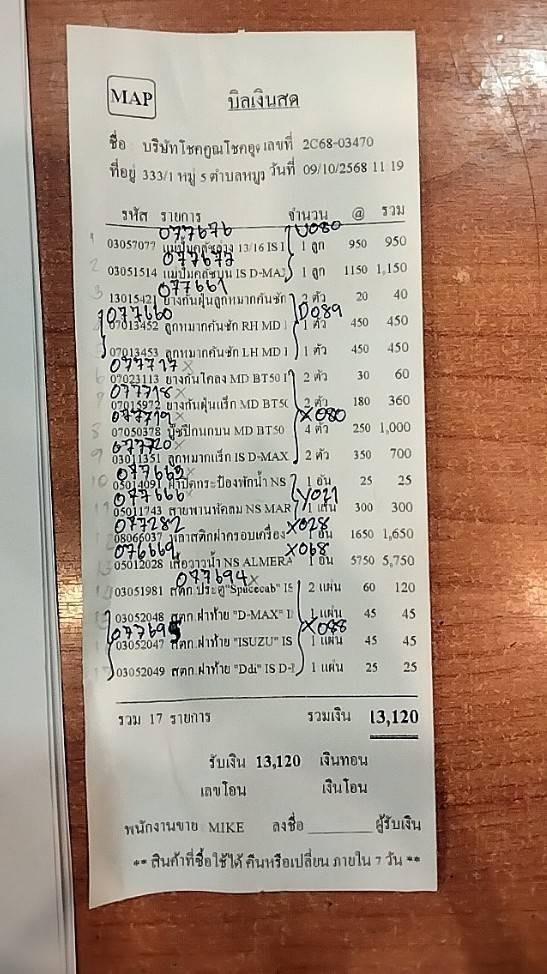 MAP
บิลเงินสด
ชื่อ บริษัทโชคคูณโชคอุ เลขที่ 2C68-03470
ที่อยู่ 333/1 หมู่ 5 ตำบลหมูร วันที่ 09/10/2568 11 19
รหัส รายการ จำนวน @ รวม
077676 U080
03057077 แม่ปั๊มคลัชล่าง 13/16 IS 1 ลูก 950 950
077677
03051514 แม่ปั๊มคลัชบน IS D-MA 1 ลูก 1150 1,150
077661
13015421 ยางกันฝุ่นลูกหมากคันชัก 2 ตัว 20 40
077660 D089
07013452 ลูกหมากคันชัก RH MD 1 ตัว 450 450
07013453 ลูกหมากคันชัก LH MD 1 ตัว 450 450
077717 X
07023113 ยางกันโคลง MD BT50 2 ตัว 30 60
077718 X
07015972 ยางกันฝุ่นแร็ก MD BT50 2 ตัว 180 360
077719 X X080
07050378 บู๊ชปีกนกบน MD BT50 4 ตัว 250 1,000
077720 X
03011351 ลูกหมากแร็ก IS D-MAX 2 ตัว 350 700
077669
05014091 ฝาปิดกระป๋องพักน้ำ NS 1 อัน 25 25
077666 Y021
05011743 สายพานพัดลม NS MAR 1 เส้น 300 300
077282 X028
08066037 พลาสติกฝาครอบเครื่อง 1 อัน 1650 1,650
076669 X068
05012028 เสื้อวาวน้ำ NS ALMERA 1 อัน 5750 5,750
077694 X
03051981 สตก.ประตู"Spacecab" IS 2 แผ่น 60 120
03052048 สตก.ฝาท้าย "D-MAX" I 1 แผ่น 45 45
077695 X088
03052047 สตก.ฝาท้าย "ISUZU" IS 1 แผ่น 45 45
03052049 สตก.ฝาท้าย "Ddi" IS D- 1 แผ่น 25 25
รวม 17 รายการ รวมเงิน 13,120
รับเงิน 13,120 เงินทอน
เลขโอน เงินโอน
พนักงานขาย MIKE ลงชื่อ ผู้รับเงิน
** สินค้าที่ซื้อใช้ได้ คืนหรือเปลี่ยน ภายใน 7 วัน **